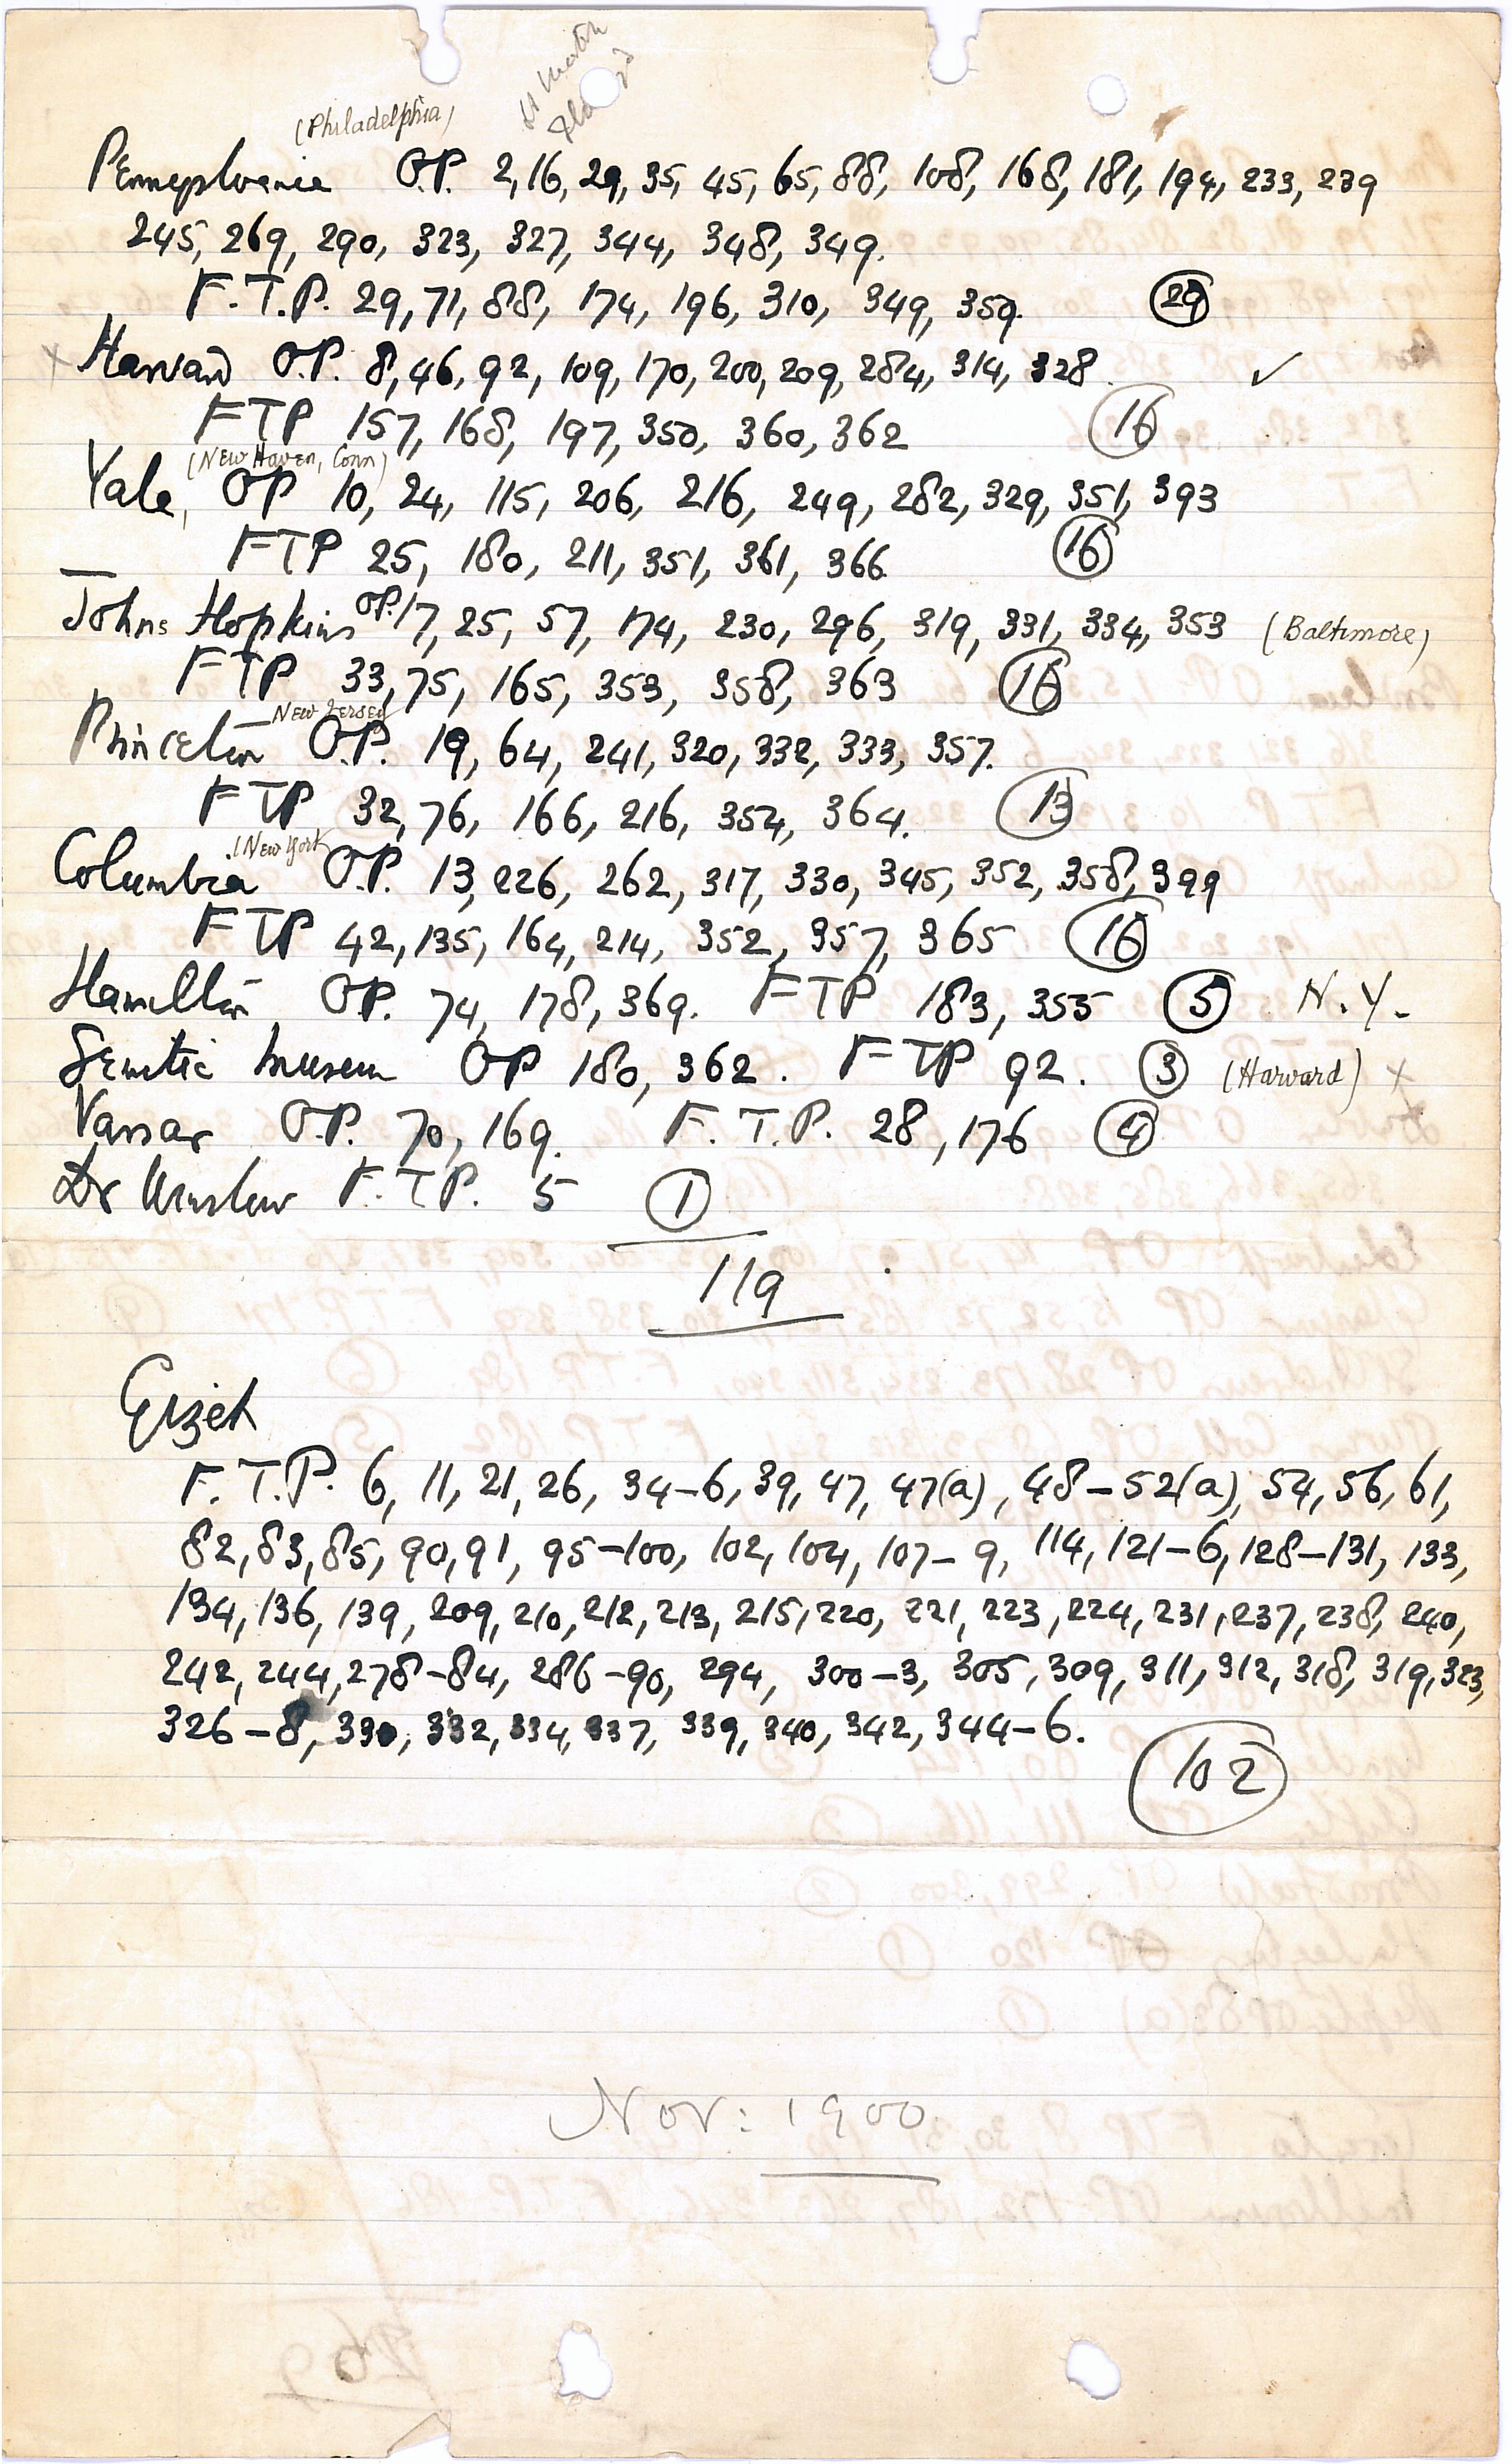 (Philadelphia)
Pennsylvania O.P. 2, 16, 29, 35, 45, 65, 88, 108, 168, 181, 194, 233, 239
245, 269, 290, 323, 327, 344, 348, 349.
F.T.P. 29, 71, 88, 174, 196, 310, 349, 359. 29
x Harvard O.P. 8, 46, 92, 109, 170, 200, 209, 284, 314, 328. ✓
FTP 157, 168, 197, 350, 360, 362 16
(New Haven, Conn)
Yale, OP 10, 24, 115, 206, 216, 249, 282, 329, 351, 393
FTP 25, 180, 211, 351, 361, 366 16
Johns Hopkins OP. 17, 25, 57, 174, 230, 296, 319, 331, 334, 353 (Baltimore)
FTP 33, 75, 165, 353, 358, 363 16
New Jersey
Princeton O.P. 19, 64, 241, 320, 332, 333, 357.
FTP 32, 76, 166, 216, 354, 364. 13
(New York
Columbia O.P. 13, 226, 262, 317, 330, 345, 352, 358, 399
FTP 42, 135, 164, 214, 352, 357, 365 16
Hamilton OP. 74, 178, 369. FTP 183, 355 5 N.Y.
Semitic Museum OP 180, 362. FTP 92. 3 (Harvard) x
Vassar O.P. 70, 169. F.T.P. 28, 176 4
Dr Winslow F.T.P. 5 1
119
Gizeh
F.T.P. 6, 11, 21, 26, 34-6, 39, 47, 47(a), 48-52(a), 54, 56, 61,
82, 83, 85, 90, 91, 95-100, 102, 104, 107-9, 114, 121-6, 128-131, 133,
134, 136, 139, 209, 210, 212, 213, 215, 220, 221, 223, 224, 231, 237, 238, 240,
242, 244, 278-84, 286-90, 294, 300-3, 305, 309, 311, 312, 318, 319, 323,
326-8, 330, 332, 334, 337, 339, 340, 342, 344-6.
102
Nov: 1900